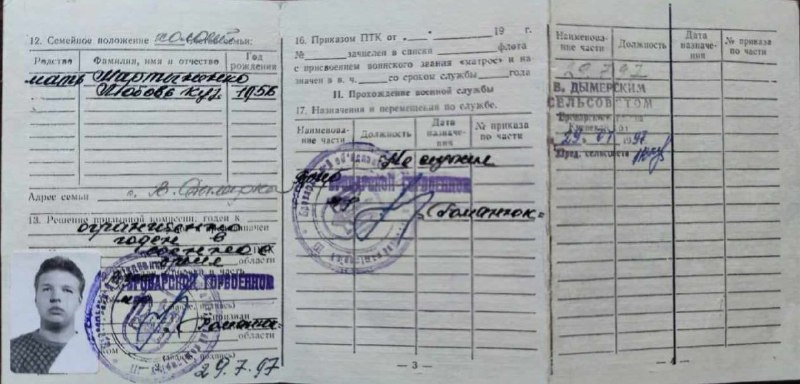 12. Семейное положение холост
Родство
Фамилия, имя и отчество
Год рождения
мать Мартыненко
Любовь Куз. 1956
Адрес семьи с. В. Дымерка
13. Решение призывной комиссии: годен к
ограниченно
годен в
военное
время
области
БРОВАРСКОЙ ГОРВОЕНКОМ
Романюк
области
29.7.97
16. Приказом ПТК от 19 г.
№ зачислен в списки флота
с присвоением воинского звания «матрос» и на
значен в в. ч. со сроком службы года
II. Прохождение военной службы
17. Назначения и перемещения по службе.
Наименование части
Должность
Дата назначения
№ приказа по части
Не служил
БРОВАРСКОЙ ГОРВОЕНКОМ
Романюк
— 3 —
Наименование части
Должность
Дата назначения
№ приказа по части
29.7.97
В. ДЫМЕРСКИМ
СЕЛЬСОВЕТОМ
29 07 1997
Пред. сельсовета